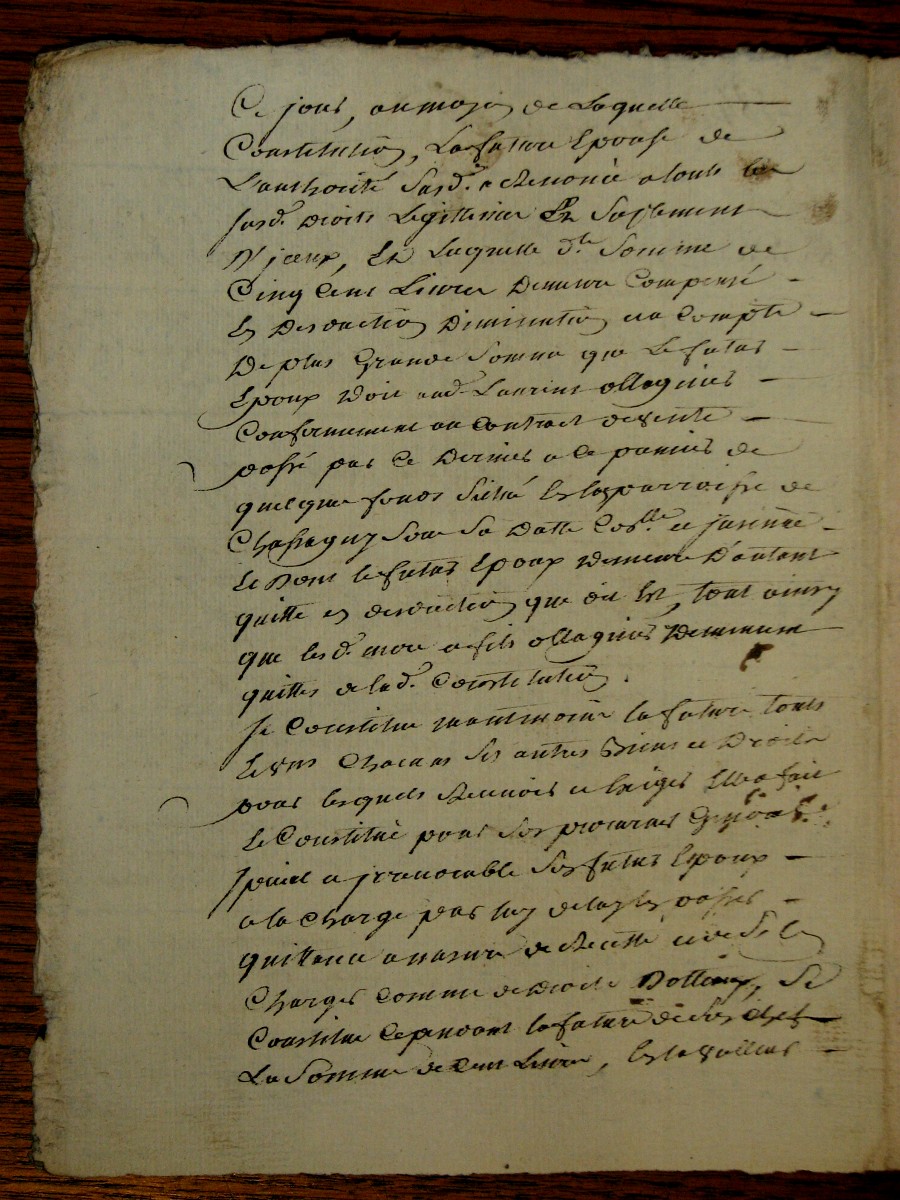 Ce jour, au moyen de Laquelle
Constitution, La future Epouse de
L'authorité susd. a Renoncé a touts les
susd. droits Legitimes Et Suplement
D'jceux, Et Laquelle d.te Somme de
Cinq Cent Livres Demeure Compensé
En Deduction Diminution et a Compte
De plus Grande Somme que Le futur
Epoux Doit aud. Laurent ollagnier
Conformement au Contract de vente
passé par Ce Dernier a Ce premier de
quelque fonds Situé En la parroisse de
Chassagny Sous Sa Datte Con.lle et jnsinué
Et Dont le futur Epoux Demeure D'autant
quitte en deduction que dit Est, tout ainsy
que lesd. mere et fils ollagnier Demeurent
quittes de lad. Constitution.
Se Constitue neantmoins la future touts
Et uns Chacuns Ses autres Biens et Droits
pour lesquels Recevoir et Exiger Elle a fait
Et Constitué pour Son procureur General
special et jrrevocable Son futur Epoux
a la Charge par luy de leur En passer
quittance a mesure de Recette et de Se
Charger Comme de Droits Dotteaux, Se
Constitue Cependant la future de Son Chef
La Somme de Cent Livres, En la valleur